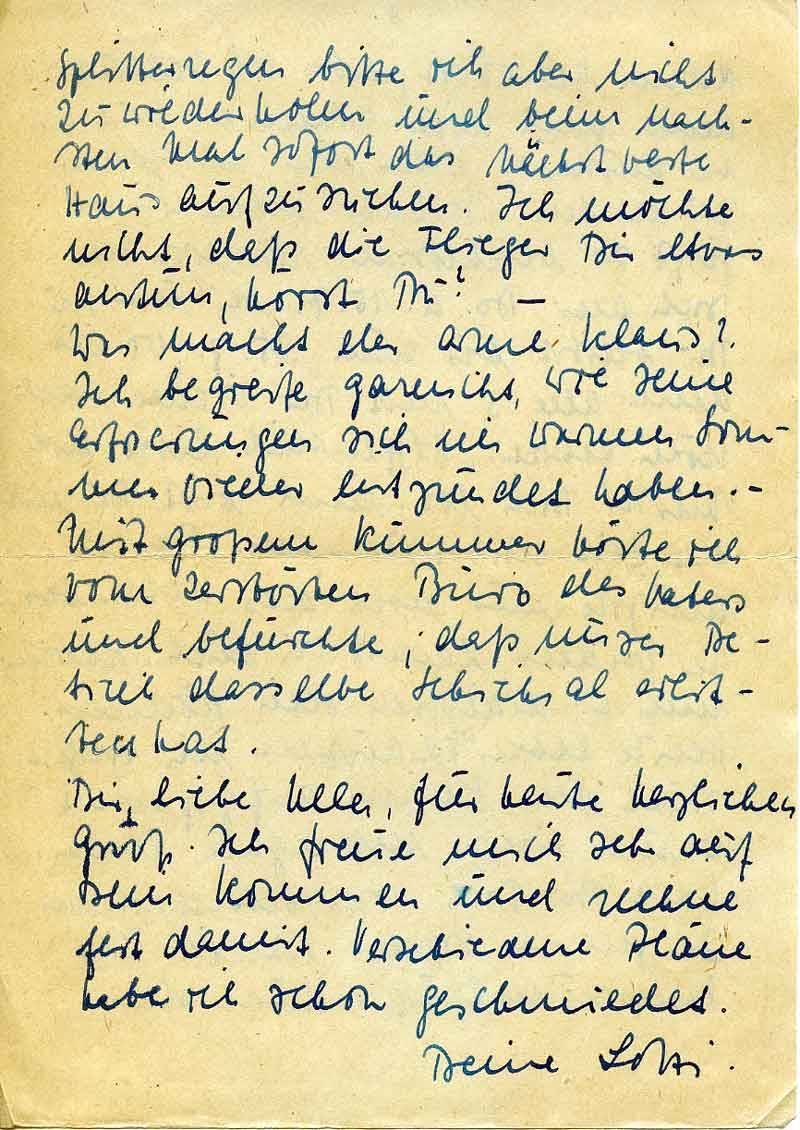 Splitterregen bitte ich aber nicht
zu wiederholen und beim näch-
sten Mal sofort das nächstbeste
Haus aufzusuchen. Ich möchte
nicht, daß die Flieger Dir etwas
antun, hörst Du? —
Was macht der arme Klaus?
Ich begreife garnicht, wie seine
Erfrierungen sich im warmen Som-
mer wieder entzündet haben. -
Mit großem Kummer hörte ich
vom zerstörten Büro des Vaters
und befürchte, daß unser Be-
trieb dasselbe Schicksal erlit-
ten hat.
Dir, liebe, für heute herzlichen
Gruß. Ich freue mich sehr auf
Dein Kommen und rechne
fest damit. Verschiedene Pläne
habe ich schon geschmiedet.
Deine Lotti.